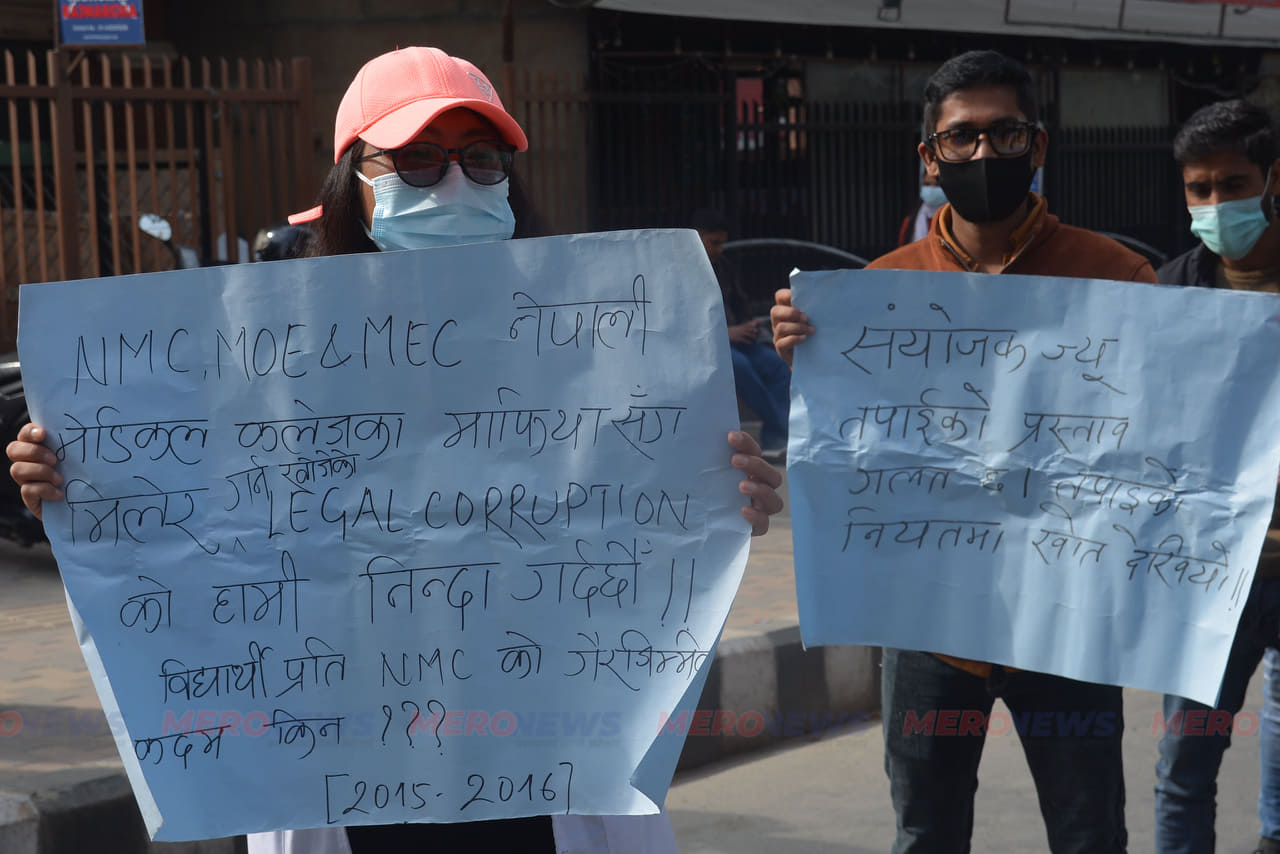 NMC, MOE & MEC नेपाली
मेडिकल कलेजका माफिया संग
मिलेर गर्न खोजेको LEGAL CORRUPTION
को हामी निन्दा गर्दछौं !!
विद्यार्थी प्रति NMC को गैरजिम्मेव
कदम किन ???
[2015-2016]
संयोजक ज्यू
तपाईको प्रस्ताव
गलत छ। तपाइको
नियतमा खोत देखियो !!
MERONEWS MERONEWS MERONEWS MERONEWS